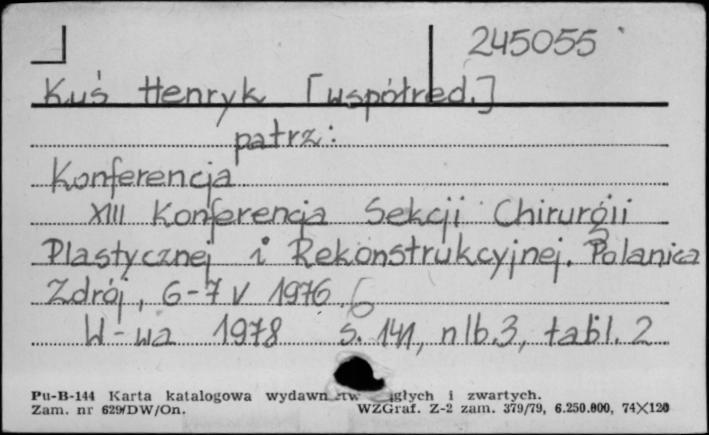 245055
Kuś Henryk [współred.]
patrz:
Konferencja
XIII Konferencja Sekcji Chirurgii
Plastycznej i Rekonstrukcyjnej. Polanica
Zdrój, 6-7 V 1976.
W-wa 1978 s. 141, nlb. 3, tabl. 2
Pu-B-144 Karta katalogowa wydawn ctw iągłych i zwartych.
Zam. nr 629/DW/On. WZGraf. Z-2 zam. 379/79, 6.250.000, 74×120